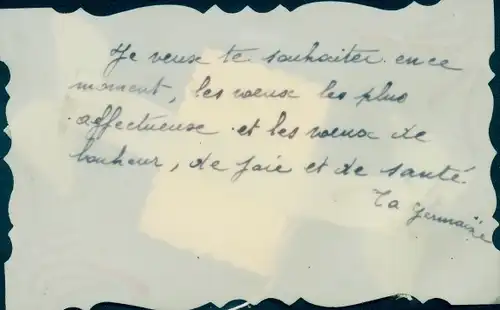 Je veux te souhaiter en ce
moment, les voeux les plus
affectueuse et les voeux de
bonheur, de joie et de santé
Ta Germaine